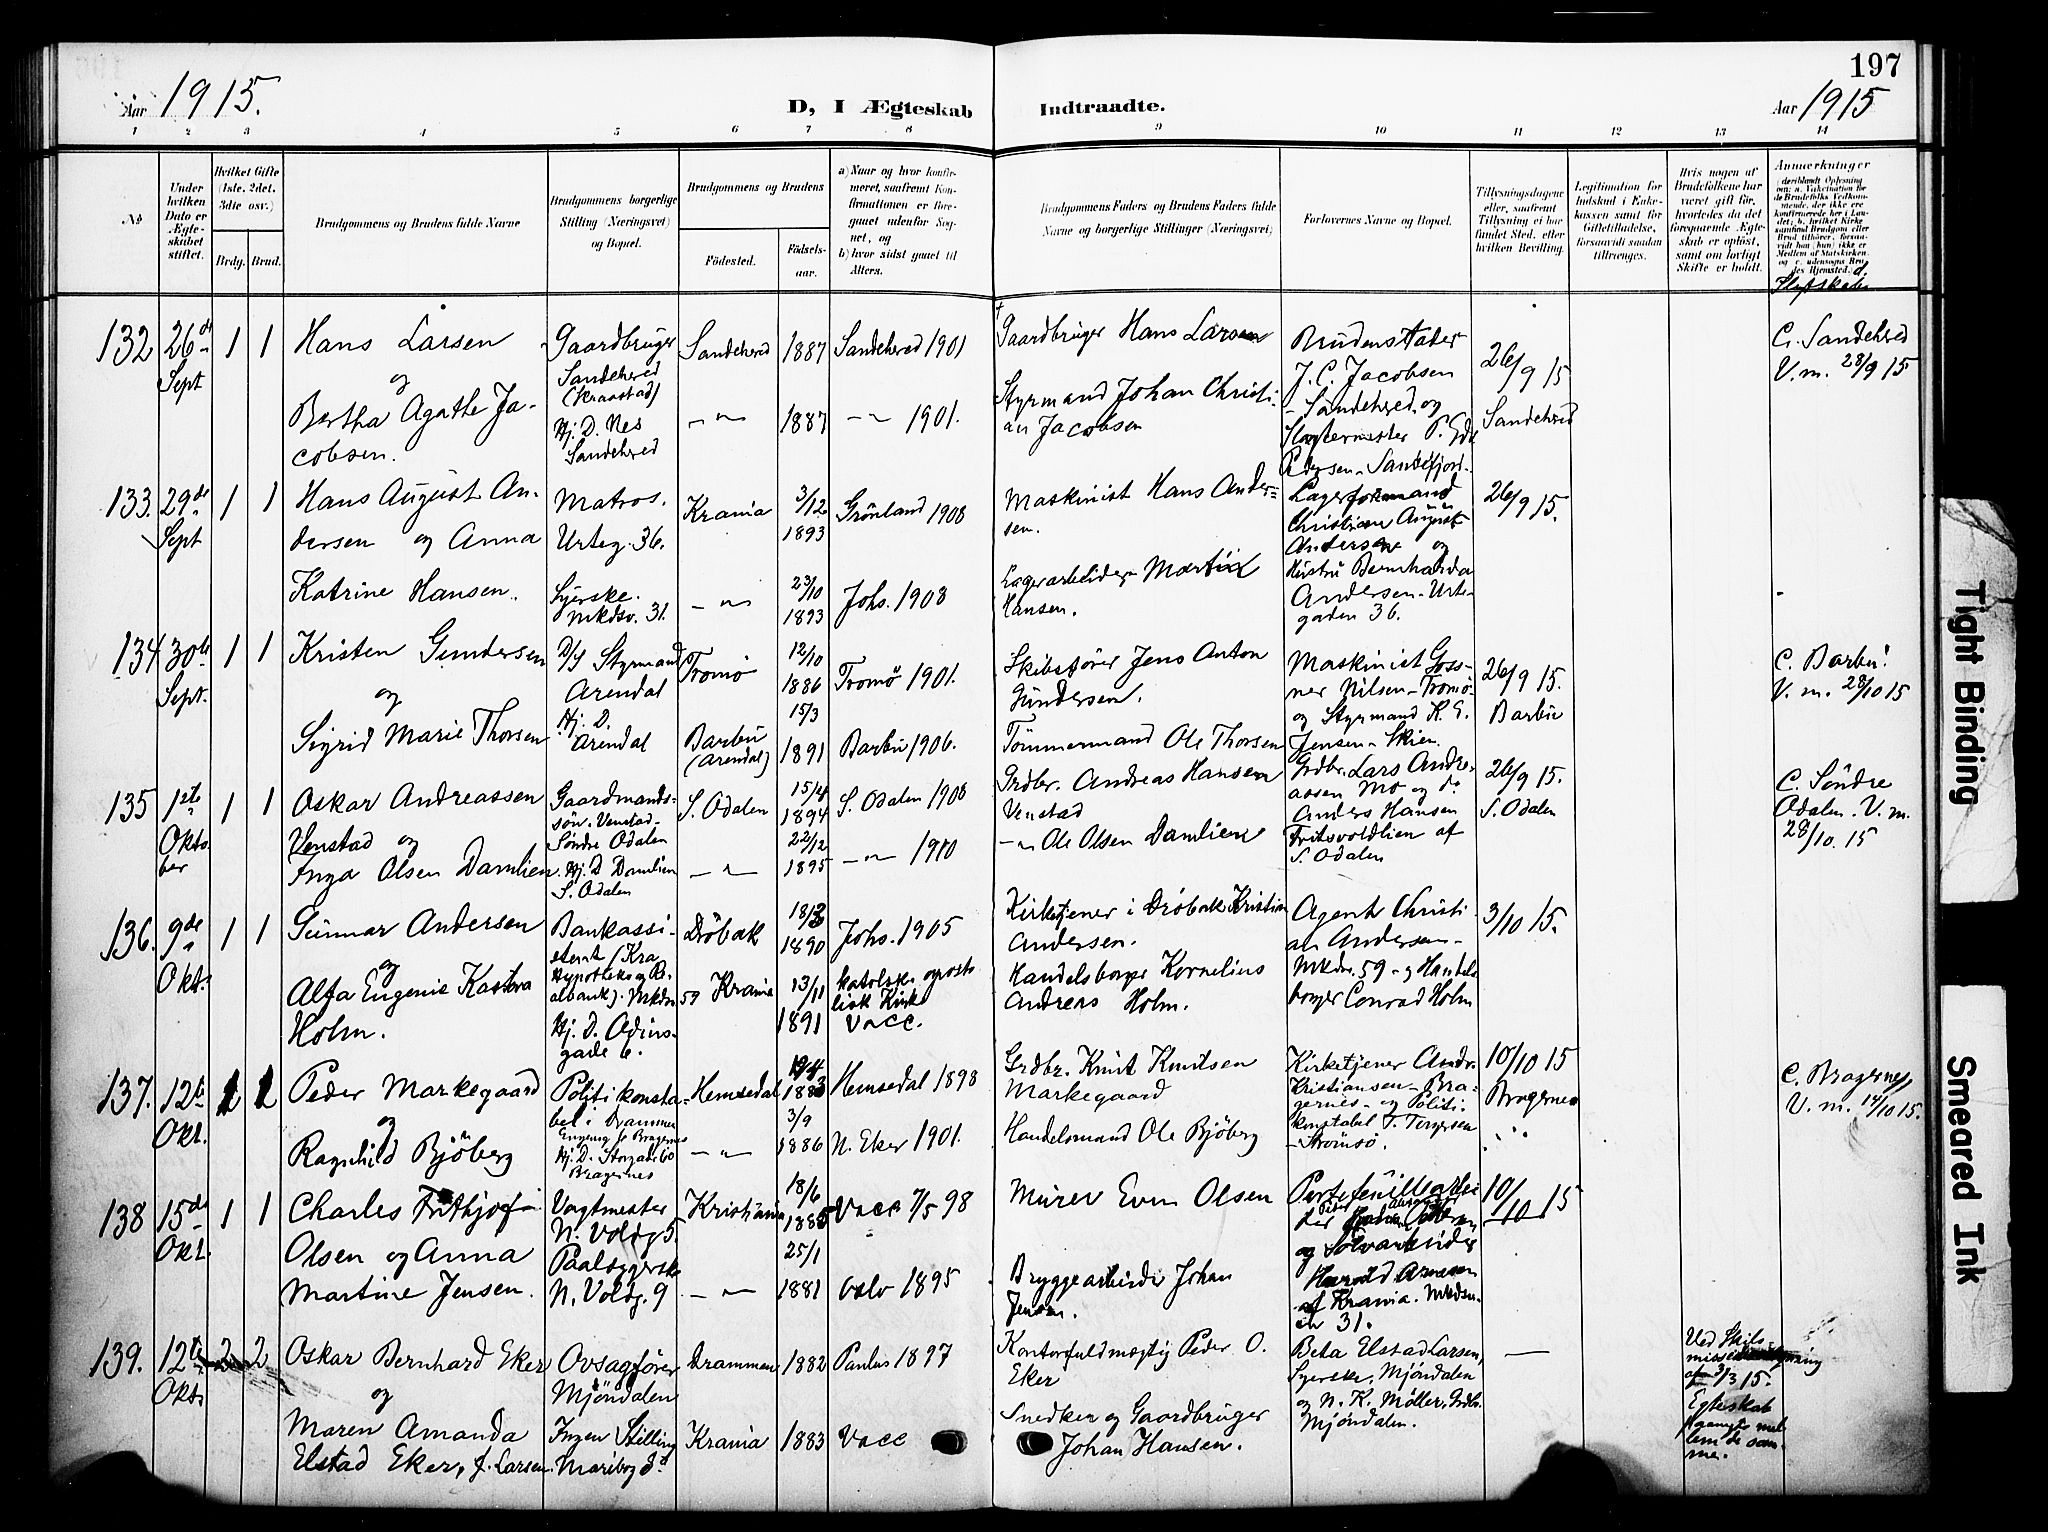 197
Aar 1915.
D, I Ægteskab Indtraadte.
Aar 1915
1 2 3 4 5 6 7 8 9 10 11 12 13 14
No
Under hvilken Dato er Ægteskabet stiftet.
Hvilket Gifte (1ste, 2det, 3dte osv.)
Brdg. Brud.
Brudgommens og Brudens fulde Navne
Brudgommens borgerlige Stilling (Næringsvei) og Bopæl.
Brudgommens og Brudens
Fødested.
Fødselsaar.
a) Naar og hvor konfirmeret, saafremt Konfirmationen er foregaaet udenfor Sognet, og
b) hvor sidst gaaet til Alters.
Brudgommens Faders og Brudens Faders fulde Navne og borgerlige Stillinger (Næringsvei)
Forlovernes Navne og Bopæl.
Tillysningsdagene eller, saafremt Tillysning ei har fundet Sted, efter hvilken Bevilling.
Legitimation for Indskud i Enkekassen samt for Giftetilladelse, forsaavidt saadan tiltrænges.
Hvis nogen af Brudefolkene har været gift før, hvorledes da det foregaaende Ægteskab er opløst, samt om lovligt Skifte er holdt.
Anmerkninger
132 26de Sept 1 1
Hans Larsen
og
Bertha Agathe Jacobsen.
Gaardbruger
Sandeherred
Hj. D. Nes
Sandeherred
Sandeherred
— " —
1887
1887
Sandeherred 1901
— " — 1901.
Gaardbruger Hans Larsen
Styrmand Johan Christian Jacobsen
Brudens Fader
J. C. Jacobsen
- Sandeherred og
Pedersen - Sandefjord.
26/9 15
Sandeherred
C. Sandeherred
V. m. 28/9 15
133. 29de Sept 1 1
Hans August Andersen og Anna
Katrine Hansen.
Matros.
Urteg. 36.
Syerske.
Mkdsv. 31.
Krania
— " —
3/12
1893
23/10
1893
Grønland 1908
Johs. 1908
Maskinist Hans Andersen.
Lagerarbeider Martin
Hansen.
Lagerformand
Christian August
Andersen og
Hustru Bernharda
Andersen - Urtegaden 36.
26/9 15.
134 30te Sept. 1 1
Kristen Gundersen
og
Sigrid Marie Thorsen
D/S Styrmand
Arendal
Hj. D.
Arendal
Tromø
Barbu
(Arendal)
12/10
1886
15/3
1891
Tromø 1901.
Barbu 1906.
Skibsfører Jens Anton
Gundersen.
Tømmermand Ole Thorsen
Maskinist Gossner Nilsen - Tromø
og Styrmand K. G.
Jensen - Skien.
26/9 15.
Barbu
C. Barbu.
V. m. 28/10 15
135 1ste Oktober 1 1
Oskar Andreassen
Venstad og
Inga Olsen Damlien
Gaardmandssøn. Venstad
Søndre Odalen
Hj. D Damlien
S. Odalen
S. Odalen
— " —
15/4
1894
22/12
1895
S. Odalen 1908
— " — 1910
Grdbr. Andreas Hansen
Venstad
— " Ole Olsen Damlien
Grdbr. Lars Andreassen Mo og do
Anders Hansen
af
S. Odalen
26/9 15.
S. Odalen
C. Søndre
Odalen. V. m.
28/10. 15
136. 9de Okt. 1 1
Gunnar Andersen
og
Alfa Eugenie
Holm.
Bankassistent (Kra
Hypothek og Realbank). Mkdsv. 59
Hj. D. Odinsgade 6.
Drøbak
Krania
1890
13/11
1891
Johs. 1905
katolsk apostolisk Kirke
Vacc.
Kirketjener i Drøbak Kristian
Andersen.
Handelsborger Kornelius
Andreas Holm.
Agent Christian Andersen -
Mkdsv. 59 - og Handelsborger Conrad Holm
3/10 15.
137. 12te Okt.
Peder Markegaard
og
Ragnhild Bjøberg
Politikonstabel i Drammen
Hj. D. Storgaden
Bragernes
Hemsedal
— " —
3/9
1886
Hemsedal 1898
N. Eker 1901.
Grdbr. Knut Knutsen
Markegaard
Handelsmand Ole Bjøberg
Kirketjener Andr.
Kristiansen - Bragernes - og Politikonstabel T. Terjesen
- Strømsø.
10/10 15
Bragernes
C. Bragernes
V. m. 14/10 15.
138 15de Okt. 1 1
Charles Frithjof
Olsen og Anna
Martine Jensen.
Vogtmester
N. Voldg 5.
Paalsyerske
N. Voldg. 9
Kristiania
— " —
18/6
1885
25/1
1881
Vacc 7/5 98
Oslo 1895
Murer Even Olsen
Bryggearbeider Johan
Jensen.
og
Harald Arnesen
af Krania.
31.
10/10 15
139. 12te Okt. 2 2
Oskar Bernhard Eker
og
Maren Amanda
Elstad Eker, f. Larsen.
Ovsagfører
Mjøndalen
Ingen Stilling
Maribog.
Drammen
Krania
1882
1883
Paulus 1897
Vacc
Kontorfuldmægtig Peder O.
Eker
Snedker og Gaardbruger
Johan Hansen.
Beta Elstad Larsen,
Syerske, Mjøndalen
og N. K. Møller, Grdbr.
Mjøndalen.
—
Ved Skilsmissebevilgning
af 3/3 15.
Egteskab
mellem de samme.
Tight Binding
Smeared Ink